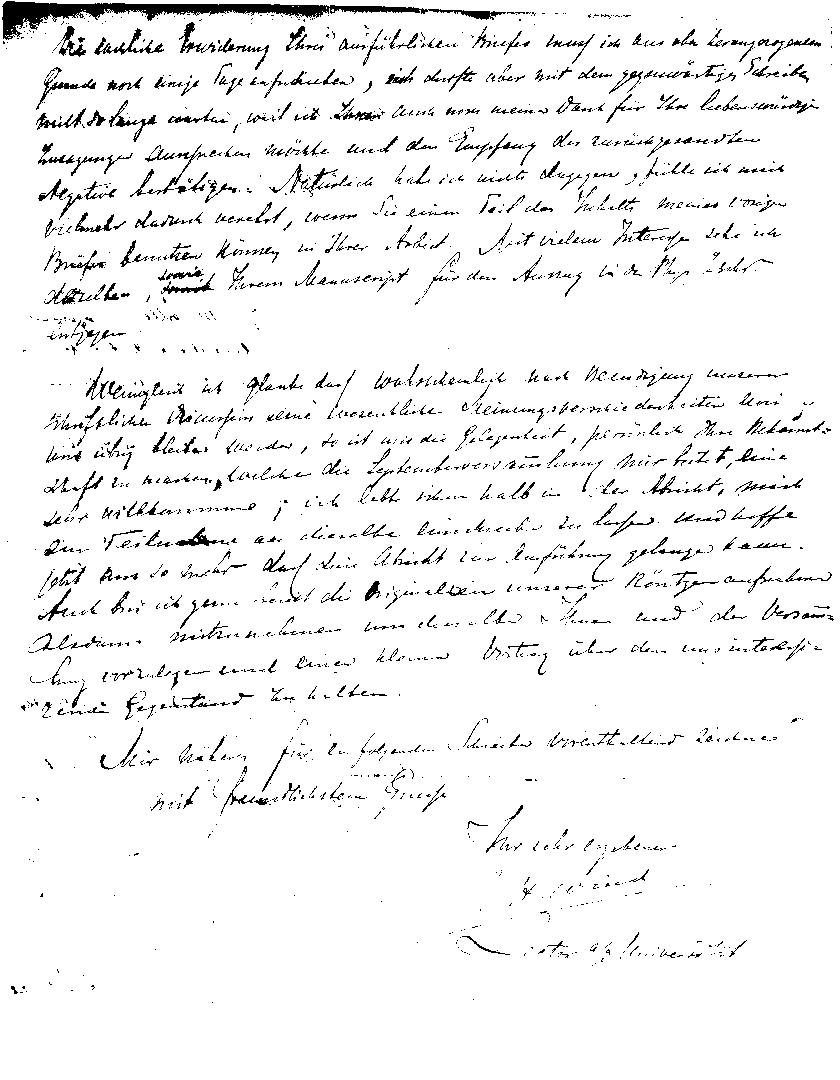 Die sachliche Erwiderung Ihres ausführlichen Briefes muss ich aus oben herangezogenem
Grunde noch einige Tage aufschieben, ich durfte aber mit dem gegenwärtigen Schreiben
nicht so lange warten, weil ich Ihnen auch noch meinen Dank für Ihre liebenswürdige
Zusagungen aussprechen möchte und den Empfang der zurückgesandten
Negative bestätigen. Natürlich habe ich nichts dagegen, fühle ich mich
vielmehr dadurch verehrt, wenn Sie einen Teil des Inhalts meines vorigen
Briefes benutzen können in Ihrer Arbeit. Mit vielem Interesse sehe ich
derselben, sowie Ihrem Manuscript für den Auszug in der Phys. Zschr.
entgegen.
Wenngleich ich glaube dass wahrscheinlich nach Beendigung unserer
schriftlichen Discussion keine wesentliche Meinungsverschiedenheiten bei
uns übrig bleiben werden, so ist mir die Gelegenheit, persönlich Ihre Bekannt-
schaft zu machen, welche die Septemberversammlung mir bietet, eine
sehr willkommene; ich lebte schon halb in der Absicht, mich
zur Teilnahme an dieselbe einschreiben zu lassen und hoffe
jetzt um so mehr dass diese Absicht zur Ausführung gelangen kann.
Auch bin ich gerne bereit die Originalien unserer Röntgenaufnahmen
Alsdann mitzunehmen um dieselbe Ihnen und der Versamm-
lung vorzulegen und einen kleinen Vortrag über den uns interessi-
renden Gegenstand zu halten.
Mir näheres für folgendes Schreiben vorenthaltend zeichne
mit freundlichstem Grusse
Ihr sehr ergebener
H. Wind
Lector a/d Universität